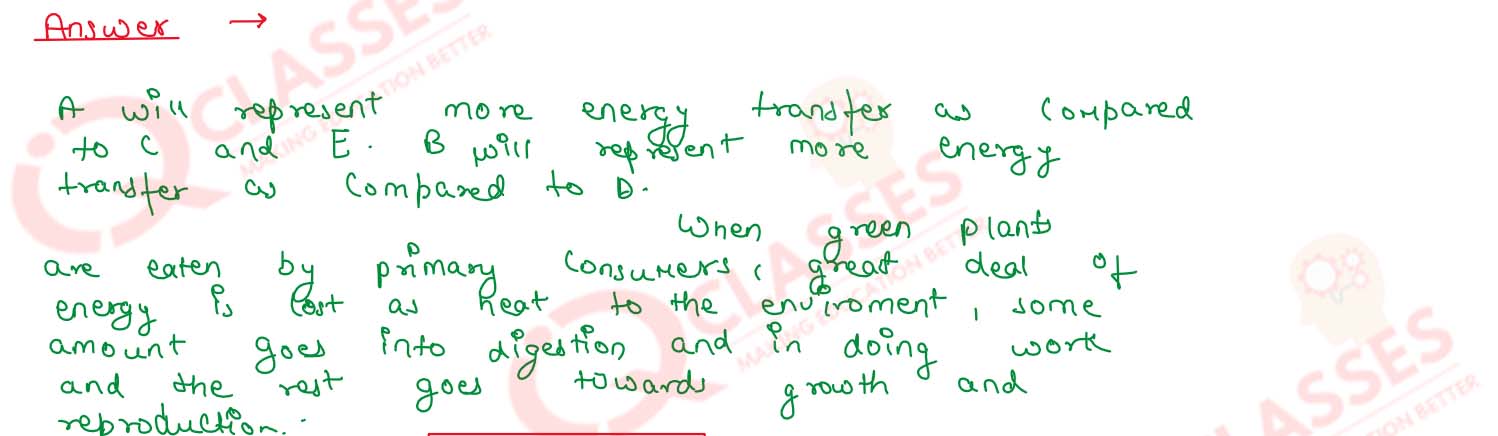 Answer →
A will represent more energy transfer as compared
to C and E. B will represent more energy
transfer as compared to D.
When green plants
are eaten by primary consumers, great deal of
energy is lost as heat to the enviroment, some
amount goes into digestion and in doing work
and the rest goes towards growth and
reproduction.
IQ CLASSES
MAKING EDUCATION BETTER
CLASSES
MAKING EDUCATION BETTER
LASSES
ION BETTER